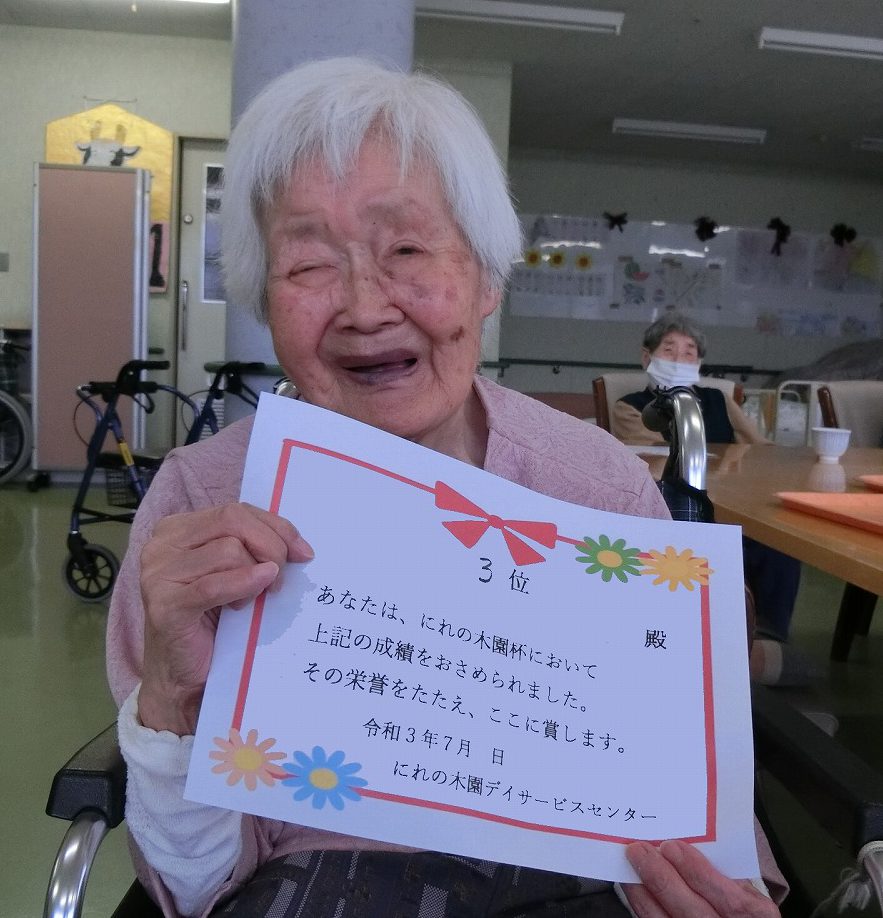 3位
殿
あなたは、にれの木園杯において
上記の成績をおさめられました。
その栄誉をたたえ、ここに賞します。
令和3年7月 日
にれの木園デイサービスセンター